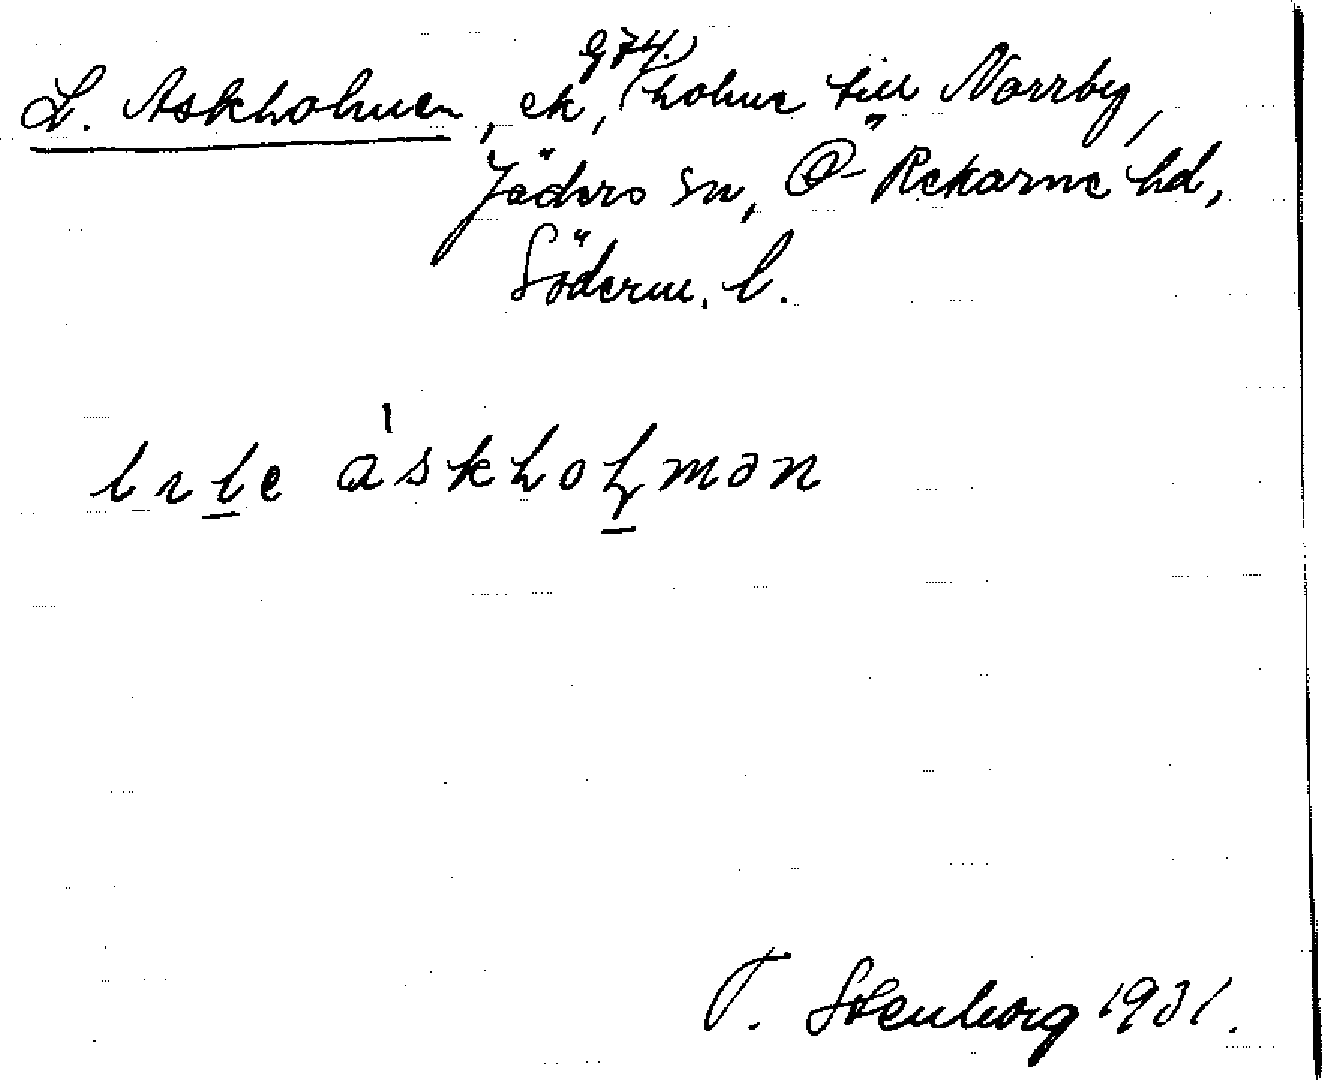 974.
L. Askholmen, ek, holme till Norrby,
Jäders sn, Ö Rekarne hd,
Söderm. l.
lıle àskholmən
T. Stenborg 1931.